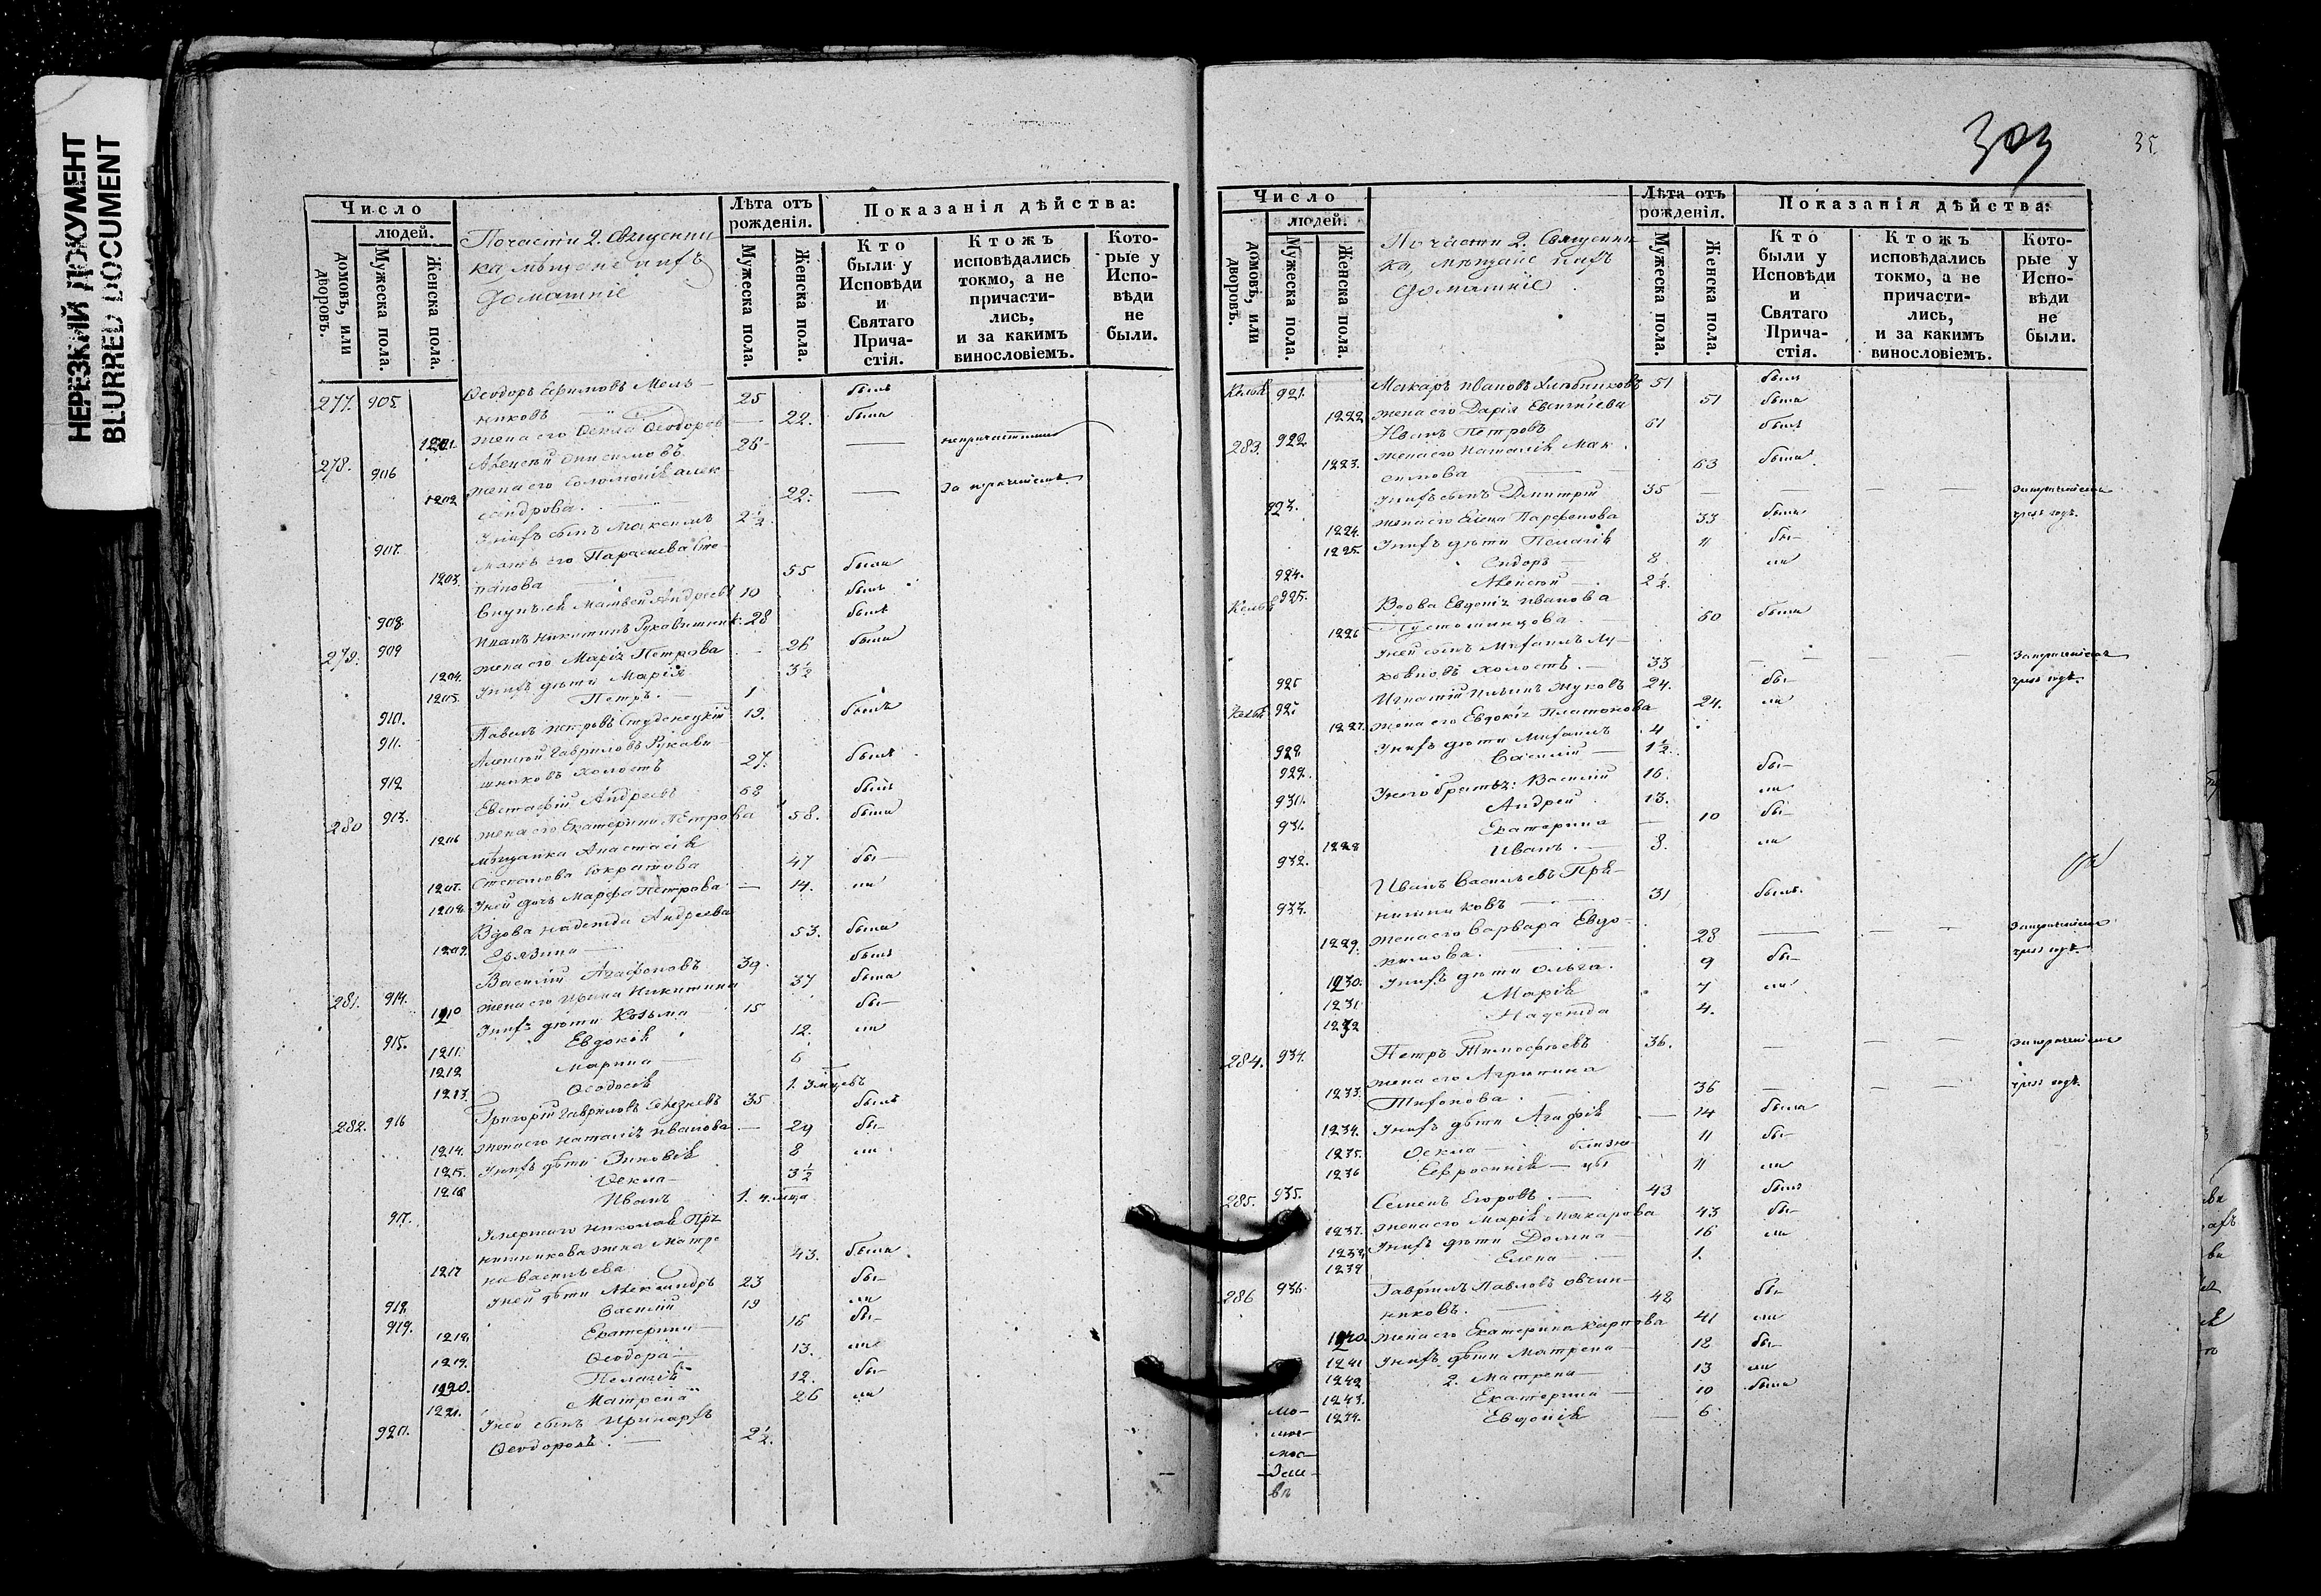 НЕРЕЗКИЙ ДОКУМЕНТ
BLURRED DOCUMENT
Число
людей.
домовъ, или дворовъ.
Мужеска пола.
Женска пола.
По части 2. Священни
ка, мѣщане и ихъ
домашніе
Лѣта отъ рожденія.
Мужеска пола.
Женска пола.
Показанія дѣйства:
Кто были у Исповѣди и Святаго Прича- стія.
Ктожъ исповѣдались токмо, а не причасти- лись, и за какимъ винословіемъ.
Кото- рые у Испо- вѣди не были.
277. 905 Ѳеодоръ Ефимовъ Мель-
никовъ 25 былъ
1201. жена его Ѳекла Ѳеодоров 22. была
278. 906 Алексѣй Онисимовъ 26
1202 жена его Соломонія Алек
сандрова. 22.
907. У нихъ сынъ Максимъ 2½
1203. Мать его Параскева Сте-
панова 55 была
908. Внукъ ея Матвей Андреевъ 10 былъ
279. 909 Иванъ Никитинъ Рукавишник. 28 былъ
1204. жена его Марія Петрова 26 была
1205. У нихъ дѣти Марія 3½
910. Петръ. 1
911. Павелъ Петровъ Студенецкій 19. былъ
912 Алексѣй Гавриловъ Рукави
шниковъ холостъ 27. былъ
280 913. Евстафій Андреевъ 68 былъ
1206 жена его Екатерина Петрова 58. была
мѣщанка Анастасія
1207. Степанова Сократова 47 бы-
1208. У ней дочь Марфа Петрова 14. ли
Вдова Надежда Андреева
1209. Грязина 53. была
281. 914. Василій Агафоновъ 39. былъ
1210 жена его Ирина Никитина 37 была
915. У нихъ дѣти Козьма 15 бы-
1211. Евдокія 12. ли
1212 Марина 6
1213. Ѳеодосія 1. 3 мцевъ
282. 916 Григорій Гавриловъ Селезневъ 35 былъ
1214. жена его Наталія Иванова 29 бы-
1215. У нихъ дѣти Зиновія 8 ли
1216 Ѳекла 3½
917. Иванъ 1. 4. мца
Умершаго Николая Пря
нишникова жена Матре
1217 на Васильева 43. была
918. У ней дѣти Александръ 23 бы-
919. Василій 19 ли
1218. Екатерина 16 бы-
1219. Ѳеодора 13. ли
1220. Пелагія 12. бы-
1221. Матрена 26 ли
920. У ней сынъ Иринархъ
Ѳеодоровъ. 2½
303
35
Число
людей.
домовъ, или дворовъ.
Мужеска пола.
Женска пола.
По части 2. Священни
ка, мѣщане и ихъ
домашніе
Лѣта отъ рожденія.
Мужеска пола.
Женска пола.
Показанія дѣйства:
Кто были у Исповѣди и Святаго Прича- стія.
Ктожъ исповѣдались токмо, а не причасти- лись, и за какимъ винословіемъ.
Кото- рые у Испо- вѣди не были.
921. Макаръ Ивановъ Хлѣбниковъ 51 былъ
1222 жена его Дарія Евгеніева 51 была
283. 922 Иванъ Петровъ 61 былъ
1223. жена его Наталія Мак
симова 63 была
923. У нихъ сынъ Дмитрій 35
1224. жена его Елена Парфенова 33 была
1225. У нихъ дѣти Пелагія 11 бы-
924. Сидоръ 8 ли
925. Алексѣй 2½
Вдова Евдокія Иванова
1226 50 была
У ней сынъ Михаилъ Лу-
926 холостъ. 33
927 Игнатій Ильинъ Жуковъ 24. бы-
1227. жена его Евдокія Платонова 24. ли
928 У нихъ дѣти Михаилъ 4
929. Василій 1½
930. У него братья: Василій 16. бы-
931. Андрей 13. ли
1228 Екатерина 10 бы-
932. Иванъ. 8. ли
Иванъ Васильевъ Пря-
933. нишниковъ 31 былъ
1229. жена его Варвара Евдо-
кимова. 28
1230. У нихъ дѣти Ольга. 9 бы-
1231. Марія 7 ли
1232 Надежда 4.
284. 934. Петръ Тимофѣевъ 36.
жена его Агрипина
1233. Тихонова 36
1234. У нихъ дѣти Агафія 14 была
1235. Ѳекла близне- 11 бы-
1236 Евфросинія цы 11 ли
285. 935. Семенъ Егоровъ. 43 былъ
1237. жена его Марія Макарова 43 бы-
1238. У нихъ дѣти Домна 16 ли
1239 Елена 1.
286 936. Гавріилъ Павловъ Овчин-
никовъ. 48 бы-
1240. жена его Екатерина Карпова 41 ли
1241 У нихъ дѣти Матрена 18 бы-
1242 2. Матрена 13 ли
1243. Екатерина 10 была
1244. Евдокія 6